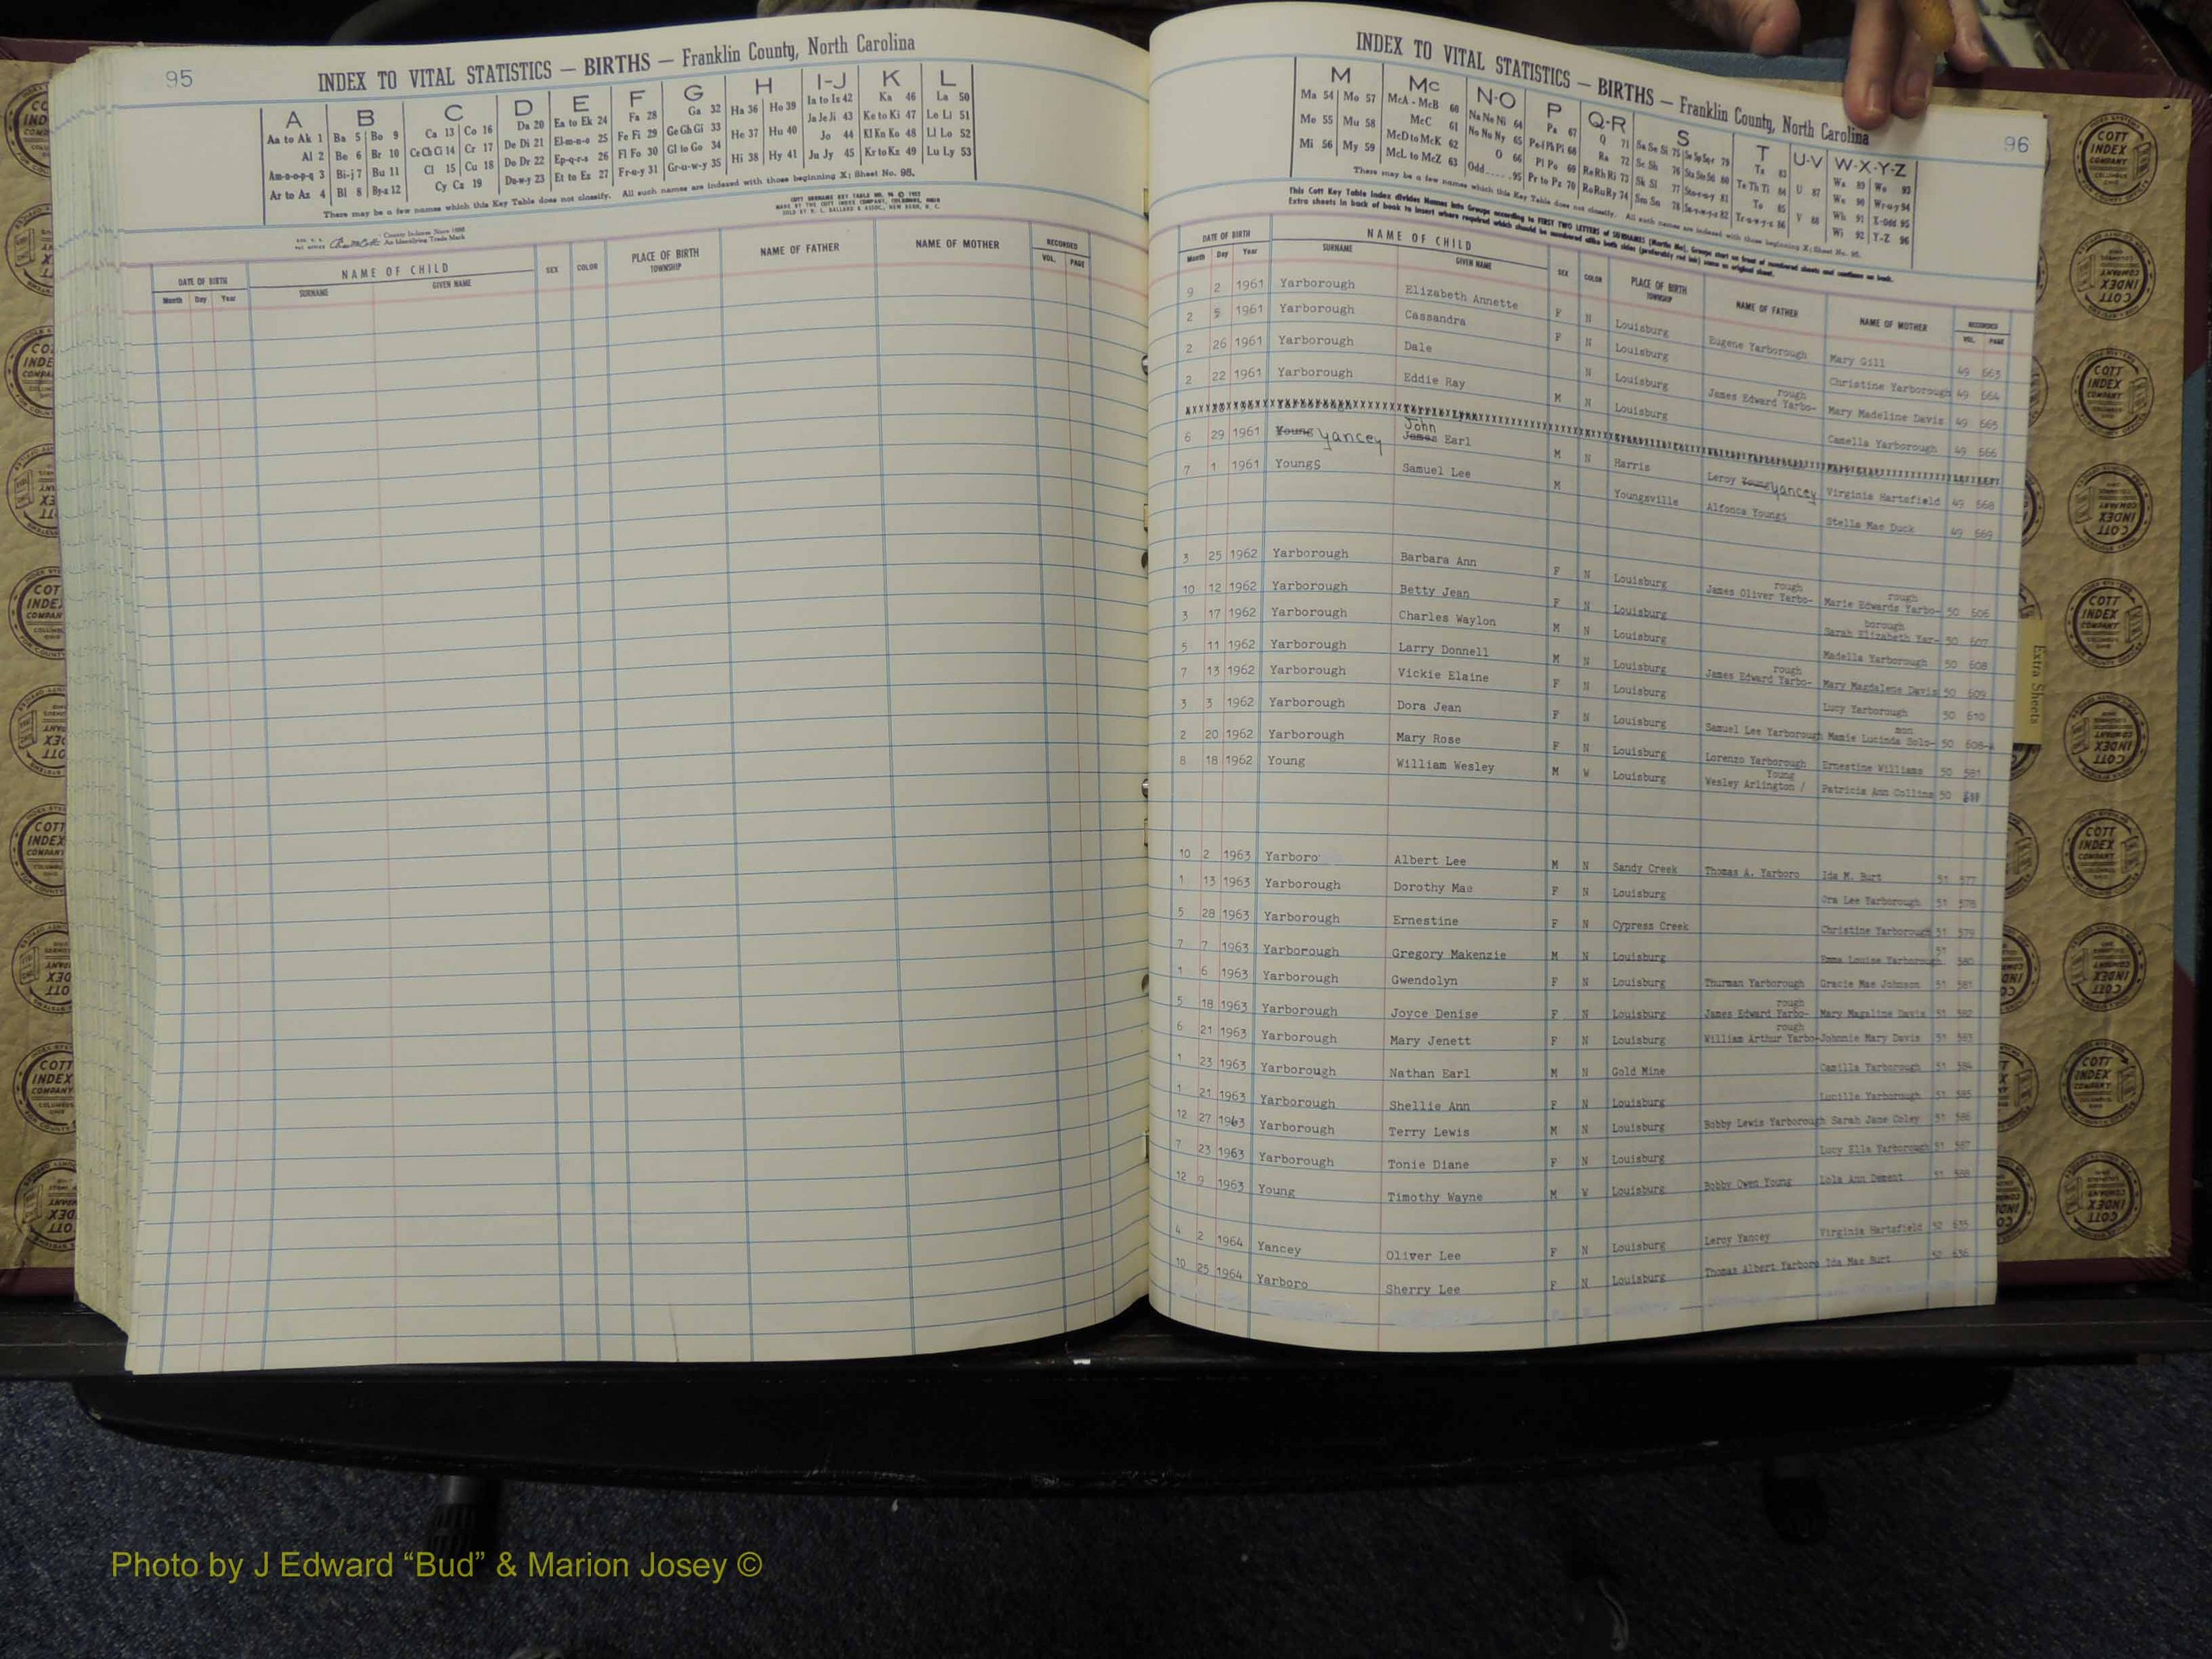 95
INDEX TO VITAL STATISTICS — BIRTHS — Franklin County, North Carolina
A B C D E F G H I-J K L
Aa to Ak 1 Ba 5 Bo 9 Ca 13 Co 16 Da 20 Ea to Ek 24 Fa 28 Ga 32 Ha 36 Ho 39 Ia to Iz 42 Ka 46 La 50
Al 2 Be 6 Br 10 Ce Ch Ci 14 Cr 17 De Di 21 El-m-n-o 25 Fe Fi 29 Ge Gh Gi 33 He 37 Hu 40 Ja Je Ji 43 Ke to Ki 47 Le Li 51
Am-n-o-p-q 3 Bi-j 7 Bu 11 Cl 15 Cu 18 Do Dr 22 Ep-q-r-s 26 Fl Fo 30 Gl to Go 34 Hi 38 Hy 41 Jo 44 Kl Kn Ko 48 Ll Lo 52
Ar to Az 4 Bl 8 By-z 12 Cy Cz 19 Du-w-y 23 Et to Ez 27 Fr-u-y 31 Gr-u-w-y 35 Ju Jy 45 Kr to Kz 49 Lu Ly 53
There may be a few names which this Key Table does not classify. All such names are indexed with those beginning X: Sheet No. 95.
County Indexes Since 1888
An Identifying Trade Mark
DATE OF BIRTH NAME OF CHILD SEX COLOR PLACE OF BIRTH NAME OF FATHER NAME OF MOTHER RECORDED
Month Day Year SURNAME GIVEN NAME TOWNSHIP VOL. PAGE
INDEX TO VITAL STATISTICS — BIRTHS — Franklin County, North Carolina
96
M Mc N-O P Q-R S T U-V W-X-Y-Z
Ma 54 Mo 57 McA - McB 60 Na Ne Ni 64 Pa 67 Q 71 Sa Se Si 75 Sn Sp Sq-r 79 Ta 83 Wa 89 Wo 93
Me 55 Mu 58 McC 61 No Nu Ny 65 Pe-f Ph Pi 68 Ra 72 Sc Sh 76 Sta Ste 80 Te Th Ti 84 U 87 We 90 Wr-u-y 94
Mi 56 My 59 McD to McK 62 O 66 Pl Po 69 Re Rh Ri 73 Sk Sl 77 Sto-r-u-y 81 To 85 V 88 Wh 91 X-Odd 95
McL to McZ 63 Odd.....95 Pr to Pz 70 Ro Ru Ry 74 Sm So 78 Su-v-w-y-z 82 Tr-u-w-y-z 86 Wi 92 Y-Z 96
There may be a few names which this Key Table does not classify. All such names are indexed with those beginning X: Sheet No. 95.
This Cott Key Table Index divides Names into Groups according to FIRST TWO LETTERS of SURNAMES (Martin Ma). Groups start on front of numbered sheets and continue on back.
Extra sheets in back of book to insert where required which should be numbered alike both sides (preferably red ink) same as original sheet.
DATE OF BIRTH NAME OF CHILD SEX COLOR PLACE OF BIRTH NAME OF FATHER NAME OF MOTHER RECORDED
Month Day Year SURNAME GIVEN NAME TOWNSHIP VOL. PAGE
9 2 1961 Yarborough Elizabeth Annette F N Louisburg Eugene Yarborough Mary Gill 49 663
2 5 1961 Yarborough Cassandra F N Louisburg Christine Yarborough 49 664
2 26 1961 Yarborough Dale N Louisburg James Edward Yarbo-rough Mary Madeline Davis 49 665
2 22 1961 Yarborough Eddie Ray M N Louisburg Camella Yarborough 49 666
6 29 1961 Young Yancey James John Earl M N Harris Leroy Young Yancey Virginia Hartsfield 49 668
7 1 1961 Youngs Samuel Lee M Youngsville Alfonca Youngs Stella Mae Duck 49 669
3 25 1962 Yarborough Barbara Ann F N Louisburg James Oliver Yarbo-rough Marie Edwards Yarbo-rough 50 606
10 12 1962 Yarborough Betty Jean F N Louisburg Sarah Elizabeth Yar-borough 50 607
3 17 1962 Yarborough Charles Waylon M N Louisburg Madella Yarborough 50 608
5 11 1962 Yarborough Larry Donnell M N Louisburg James Edward Yarbo-rough Mary Magdalene Davis 50 609
7 13 1962 Yarborough Vickie Elaine F N Louisburg Lucy Yarborough 50 610
3 3 1962 Yarborough Dora Jean F N Louisburg Samuel Lee Yarborough Mamie Lucinda Solo-mon 50 608-A
2 20 1962 Yarborough Mary Rose F N Louisburg Lorenzo Yarborough Ernestine Williams 50 581
8 18 1962 Young William Wesley M W Louisburg Wesley Arlington / Young Patricia Ann Collins 50
10 2 1963 Yarboro Albert Lee M N Sandy Creek Thomas A. Yarboro Ida M. Burt 51 577
1 13 1963 Yarborough Dorothy Mae F N Louisburg Ora Lee Yarborough 51 578
5 28 1963 Yarborough Ernestine F N Cypress Creek Christine Yarborough 51 579
7 7 1963 Yarborough Gregory Makenzie M N Louisburg Emma Louise Yarborough 51 580
1 6 1963 Yarborough Gwendolyn F N Louisburg Thurman Yarborough Gracie Mae Johnson 51 581
5 18 1963 Yarborough Joyce Denise F N Louisburg James Edward Yarbo-rough Mary Magaline Davis 51 582
6 21 1963 Yarborough Mary Jenett F N Louisburg William Arthur Yarbo-rough Johnnie Mary Davis 51 583
1 23 1963 Yarborough Nathan Earl M N Gold Mine Camilla Yarborough 51 584
1 21 1963 Yarborough Shellie Ann F N Louisburg Lucille Yarborough 51 585
12 27 1963 Yarborough Terry Lewis M N Louisburg Bobby Lewis Yarborough Sarah Jane Coley 51 586
7 23 1963 Yarborough Tonie Diane F N Louisburg Lucy Ella Yarborough 51 587
12 9 1963 Young Timothy Wayne M W Louisburg Bobby Owen Young Lola Ann Dement 51 588
4 2 1964 Yancey Oliver Lee F N Louisburg Leroy Yancey Virginia Hartsfield 52 635
10 25 1964 Yarboro Sherry Lee F N Louisburg Thomas Albert Yarboro Ida Mae Burt 52 636
Extra Sheets
COTT INDEX COMPANY
Photo by J Edward “Bud” & Marion Josey ©